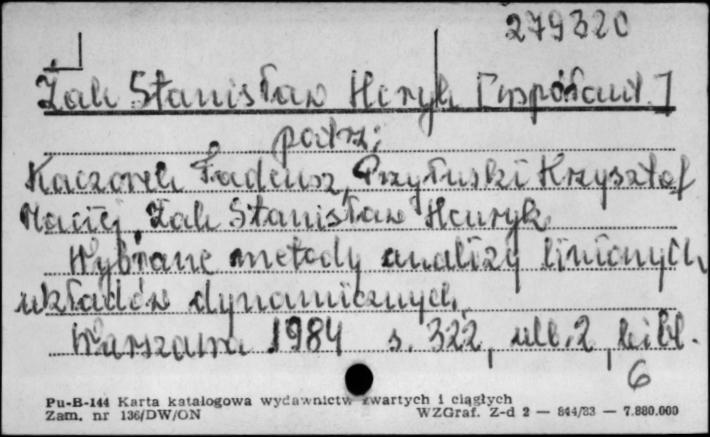 279320
Żak Stanisław Henryk [współaut.]
patrz:
Kaczorek Tadeusz, Przyłuski Krzysztof
Maciej, Żak Stanisław Henryk
Wybrane metody analizy liniowych
układów dynamicznych.
Warszawa 1984 s. 322, nlb. 2, bibl.
6
Pu-B-144 Karta katalogowa wydawnictw zwartych i ciągłych
Zam. nr 136/DW/ON WZGraf. Z-d 2 — 844/83 — 7.880.000